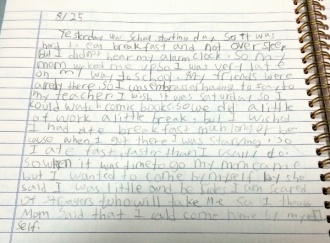 8/25
Yesterday was school starting day. So it was
hard to eat breakfast and not over sleep
but I didn't hear my alarm clock. So my
mom waked me up so I was very late
on my way to school. My friends were
already there so I was embarrassed to say to
my teacher. I wish it was Saturday so I
could watch comic books. so we did a little
of work a little break, but I wished
I had ate breakfast much more be
cause when I got there I was starving. so
I ate last faster than I usually do.
so when it was time to go my mom came
but I wanted to come by myself by she
said I was little and be sides I am scared
of strangers who will take me. So I
Mom said that I could come home by my
self.